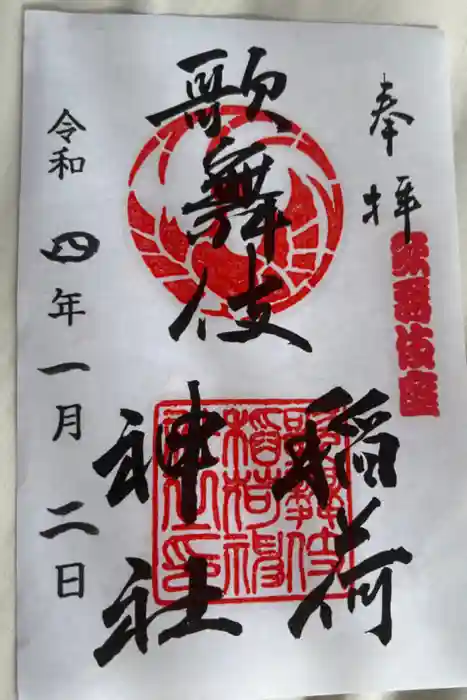 奉拝
歌舞伎座
歌舞伎
稲荷
神社
令和四年一月二日